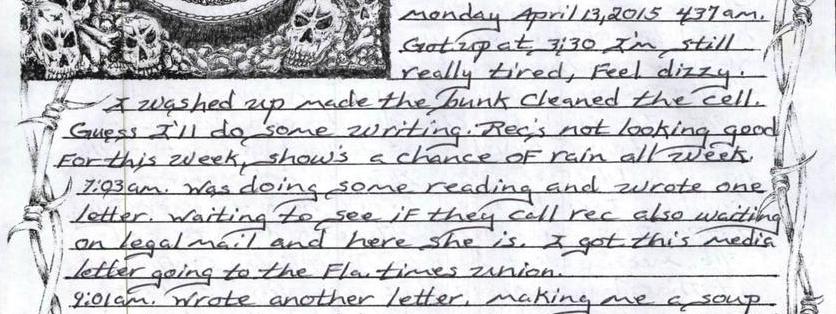 Monday April 13, 2015 437am.
Got up at, 3:30 I'm, still
really tired, Feel dizzy.
I washed up made the bunk Cleaned the cell.
Guess I'll do some writing. Rec's not looking good
For this week, show's a chance of rain all week.
7:03am. Was doing some reading and wrote one
letter. Waiting to see if they call rec also waiting
on legal mail and here she is. I got this media
letter going to the Fla. times union.
9:01am. Wrote another letter, making me a soup